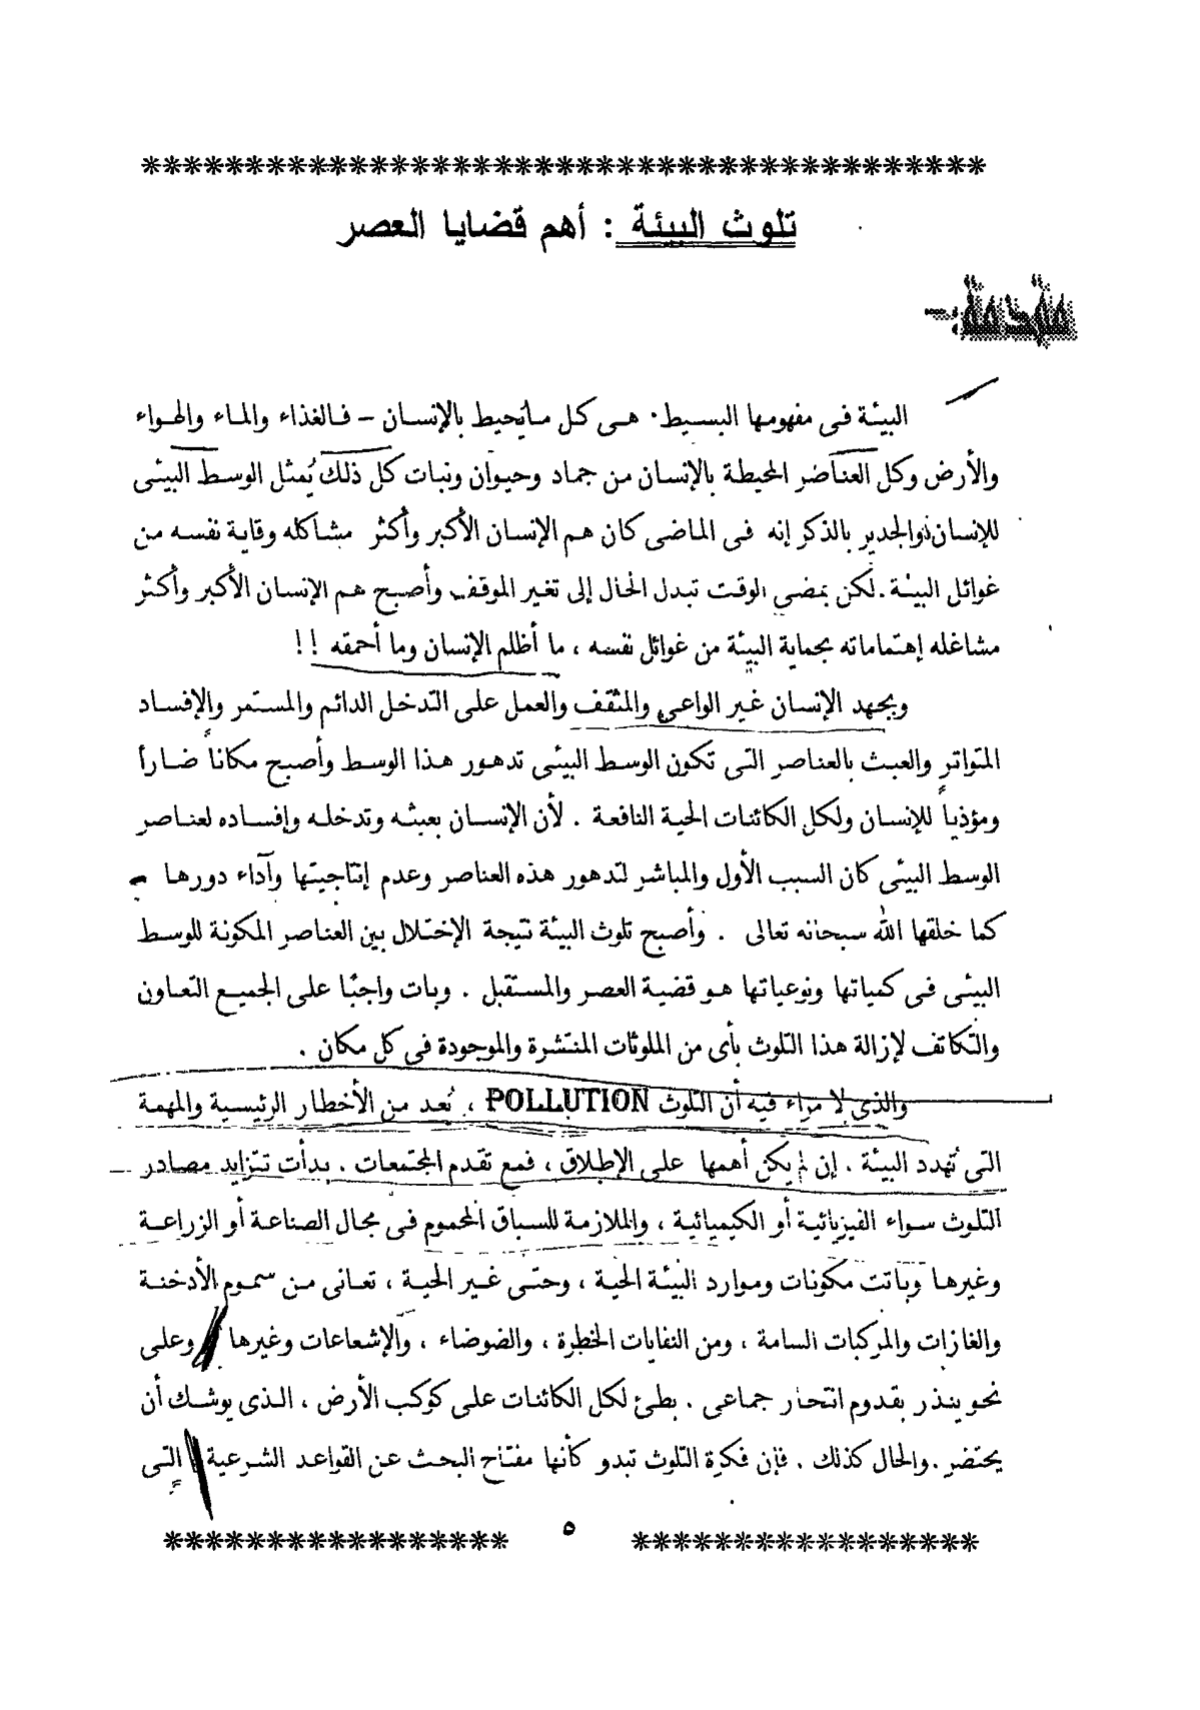 تلوث البيئة : أهم قضايا العصر
مقدمة :-
البيئة فى مفهومها البسيط . هى كل مايحيط بالإنسان - فالغذاء والماء والهواء
والأرض وكل العناصر المحيطة بالإنسان من جماد وحيوان ونبات كل ذلك يُمثل الوسط البيئى
للإنسان والجدير بالذكر إنه فى الماضى كان هم الإنسان الأكبر وأكثر مشاكله وقاية نفسه من
غوائل البيئة . لكن بمضى الوقت تبدل الحال إلى تغير الموقف وأصبح هم الإنسان الأكبر وأكثر
مشاغله إهتماماته بحماية البيئة من غوائل نفسه ، ما أظلم الإنسان وما أحمقه !!
وبجهد الإنسان غير الواعى والمثقف والعمل على التدخل الدائم والمستمر والإفساد
المتواتر والعبث بالعناصر التى تكون الوسط البيئى تدهور هذا الوسط وأصبح مكاناً ضاراً
ومؤذياً للإنسان ولكل الكائنات الحية النافعة . لأن الإنسان بعبثه وتدخله وإفساده لعناصر
الوسط البيئى كان السبب الأول والمباشر لتدهور هذه العناصر وعدم إنتاجيتها وآداء دورها
كما خلقها الله سبحانه تعالى . وأصبح تلوث البيئة نتيجة الإختلال بين العناصر المكونة للوسط
البيئى فى كمياتها ونوعياتها هو قضية العصر والمستقبل . وبات واجبًا على الجميع التعاون
والتكاتف لإزالة هذا التلوث بأى من الملوثات المنتشرة والموجودة فى كل مكان .
والذى لا مراء فيه أن التلوث POLLUTION ، يُعد من الأخطار الرئيسية والمهمة
التى تُهدد البيئة . إن لم يكن أهمها على الإطلاق ، فمع تقدم المجتمعات . بدأت تتزايد مصادر
التلوث سواء الفيزيائية أو الكيميائية ، والملازمة للسباق المحموم فى مجال الصناعة أو الزراعة
وغيرها وباتت مكونات وموارد البيئة الحية ، وحتى غير الحية ، تعانى من سموم الأدخنة
والغازات والمركبات السامة ، ومن النفايات الخطرة ، والضوضاء ، والإشعاعات وغيرها وعلى
نحو ينذر بقدوم انتحار جماعى . بطئ لكل الكائنات على كوكب الأرض ، الذى يوشك أن
يحتضر . والحال كذلك . فإن فكرة التلوث تبدو كأنها مفتاح البحث عن القواعد الشرعية التى
٥